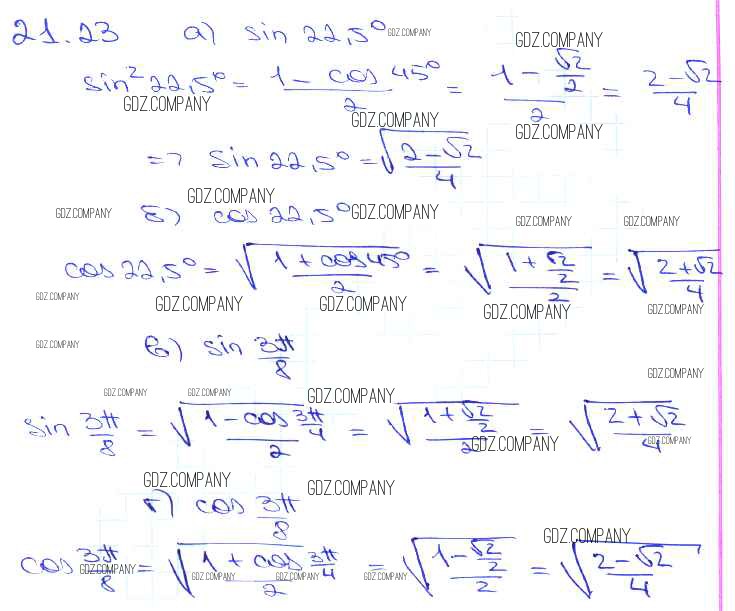 21.23 а) sin 22,5° GDZ.COMPANY GDZ.COMPANY
sin² 22,5° = (1 - cos 45°)/2 = (1 - √2/2)/2 = (2-√2)/4
GDZ.COMPANY GDZ.COMPANY GDZ.COMPANY
=> sin 22,5° = √((2-√2)/4)
GDZ.COMPANY
GDZ.COMPANY б) cos 22,5° GDZ.COMPANY GDZ.COMPANY GDZ.COMPANY
cos 22,5° = √((1 + cos 45°)/2) = √((1 + √2/2)/2) = √((2+√2)/4)
GDZ.COMPANY GDZ.COMPANY GDZ.COMPANY GDZ.COMPANY GDZ.COMPANY
GDZ.COMPANY в) sin 3π/8
GDZ.COMPANY
GDZ.COMPANY GDZ.COMPANY GDZ.COMPANY
sin 3π/8 = √((1 - cos 3π/4)/2) = √((1 + √2/2)/2) = √((2 + √2)/4)
GDZ.COMPANY GDZ.COMPANY
GDZ.COMPANY GDZ.COMPANY
г) cos 3π/8
GDZ.COMPANY
cos 3π/8 = √((1 + cos 3π/4)/2) = √((1 - √2/2)/2) = √((2-√2)/4)
GDZ.COMPANY GDZ.COMPANY GDZ.COMPANY GDZ.COMPANY